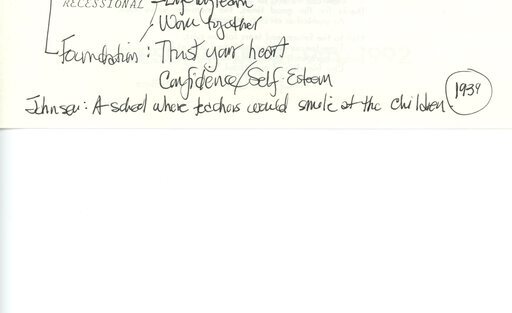 RECESSIONAL
Work together
Foundation: Trust your heart
Confidence/Self-Esteem
Johnson: A school where teachers would smile at the children. 1939